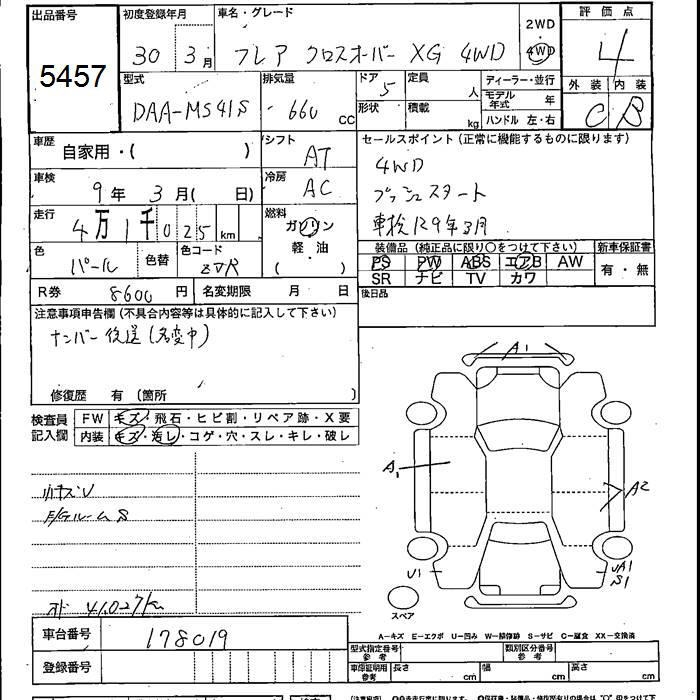 出品番号
5457
初度登録年月
30 3月
車名・グレード
フレア クロスオーバー XG 4WD
2WD
4WD
評価点
4
型式
DAA-MS41S
排気量
660 CC
ドア
5
形状
定員
人
積載
kg
ディーラー・並行
モデル年式 年
ハンドル 左・右
外装 内装
C B
車歴
自家用・( )
シフト
AT
車検
9年 3月( 日)
冷房
AC
走行
4万1千025km
燃料
ガソリン
軽・油
( )
色
パール
色替
色コード
ZVR
R券 8600円
名変期限 月 日
セールスポイント (正常に機能するものに限ります)
4WD
プッシュスタート
車検R9年3月
装備品 (純正品に限り〇をつけて下さい)
新車保証書
PS PW ABS エアB AW
SR ナビ TV カワ
有・無
後日品
注意事項申告欄 (不具合内容等は具体的に記入して下さい)
ナンバー後送 (名変中)
修復歴 有 〔箇所 〕
検査員記入欄
FW キズ・飛石・ヒビ割・リペア跡・X要
内装 キズ・汚レ・コゲ・穴・スレ・キレ・破レ
小キズU
E/GルームS
オド 41,027km
A1
A1
A2
U1
UA1
S1
スペア
A−キズ E−エクボ U−凹み W−補修跡 S−サビ C−腐食 XX−交換済
車台番号
178019
登録番号
型式指定番号
参考
類別区分番号
参考
車庫証明用
参考
長さ cm
幅 cm
高さ cm